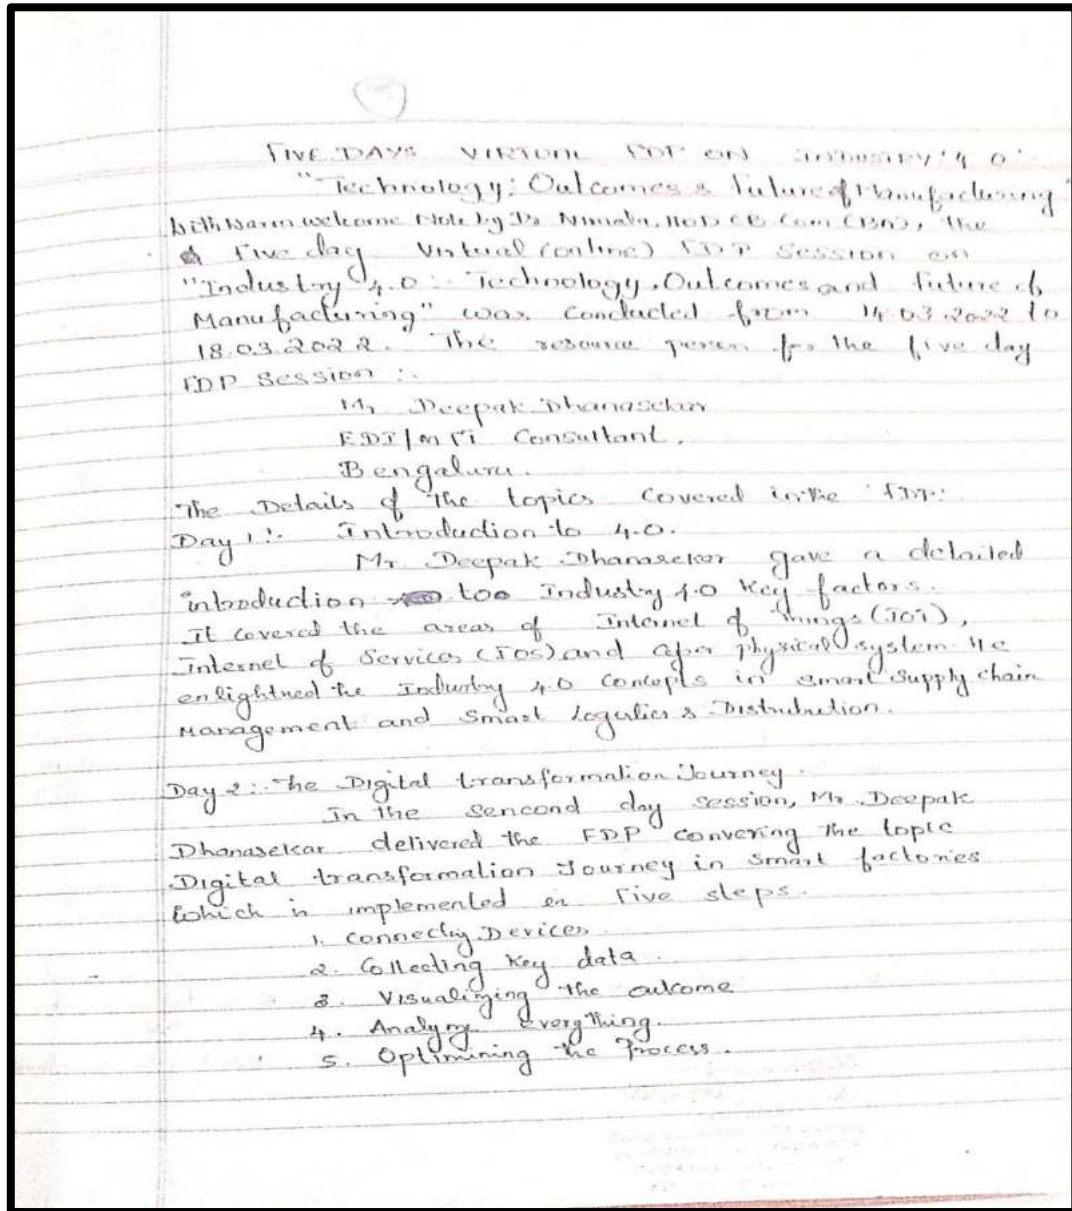 FIVE DAYS VIRTUAL FDP ON INDUSTRY: 4.0:
"Technology; Outcomes & Future of Manufacturing"
With Warm welcome Note by Dr Nirmala, HOD CB Com (BA), The
Five day Virtual (online) FDP Session on
"Industry 4.0: Technology, Outcomes and Future of
Manufacturing" was conducted from 14.03.2022 to
18.03.2022. The resource person for the five day
FDP Session :-
Mr Deepak Dhanasekar
EDI/MFT Consultant,
Bengaluru.
The Details of the topics covered in the FDP:
Day 1:- Introduction to 4.0.
Mr. Deepak Dhanasekar gave a detailed
introduction too Industry 4.0 Key factors.
It covered the areas of Internet of Things (IOT),
Internet of Services (IOS) and physical system. He
enlightned the Industry 4.0 concepts in smart supply chain
Management and Smart Logistics & Distribution.
Day 2:- The Digital transformation Journey.
In the sencond day session, Mr. Deepak
Dhanasekar delivered the FDP convering the topic
Digital transformation Journey in Smart factories
Which is implemented in Five steps.
1. Connecting Devices
2. Collecting Key data.
3. Visualizing the outcome
4. Analyze Everything.
5. Optimining the Process.